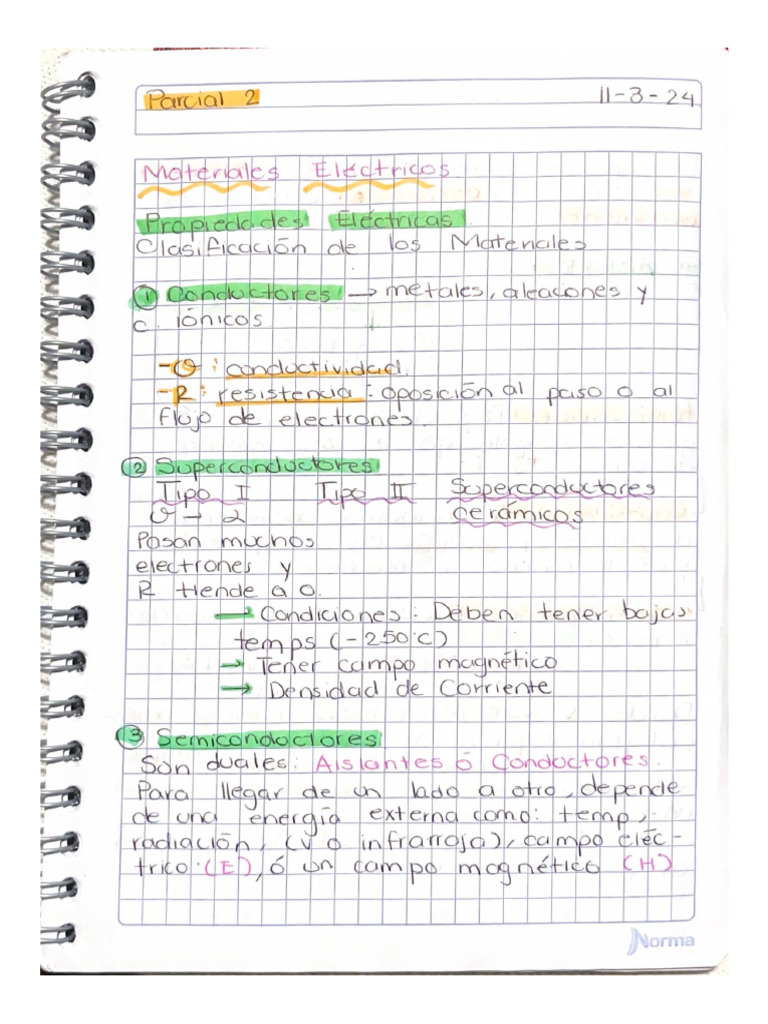 Parcial 2
11-3-24
Materiales Eléctricos
Propiedades Eléctricas
Clasificación de los Materiales
① Conductores → metales, aleaciones y
c. iónicos
-σ: conductividad.
-R: resistencia: oposición al paso o al
flujo de electrones.
② Superconductores
Tipo I Tipo II Superconductores
cerámicos
σ → α
Pasan muchos
electrones y
R tiende a 0.
→ Condiciones: Deben tener bajas
temps (-250°C)
→ Tener campo magnético
→ Densidad de Corriente
③ Semiconductores
Son duales: Aislantes ó Conductores.
Para llegar de un lado a otro, depende
de una energía externa como: temp,
radiación, (V o infrarroja), campo eléc-
trico (E), ó un campo magnético (H)
Norma